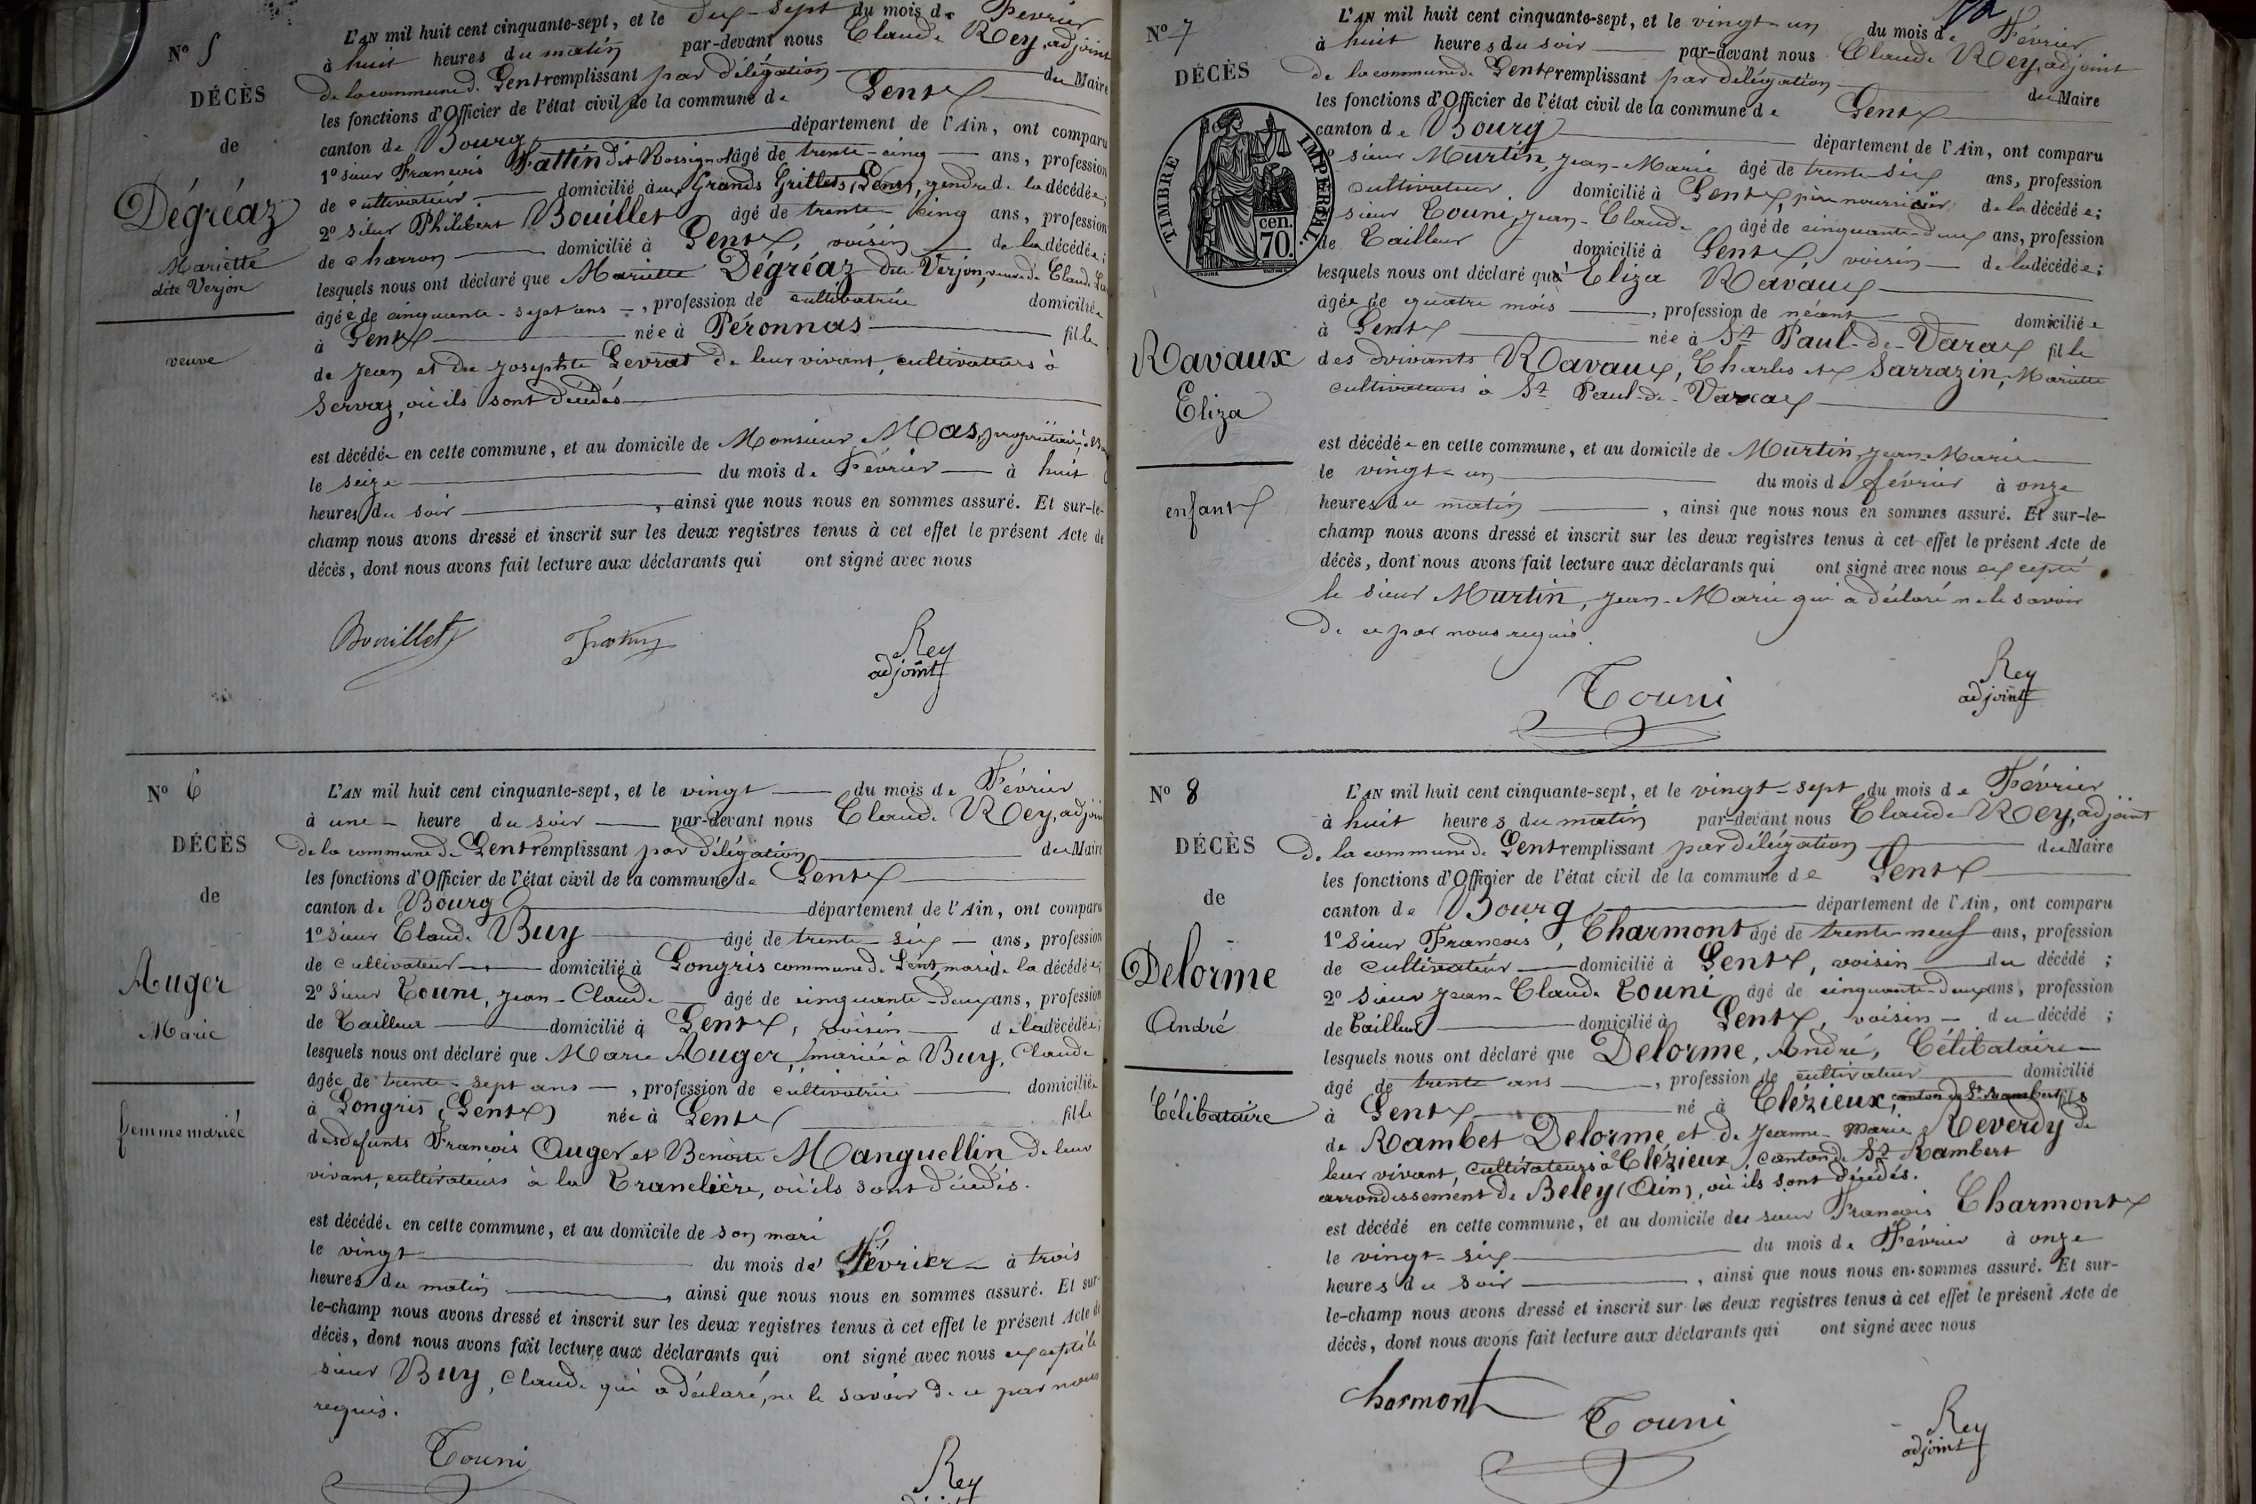 Nº 5
DÉCÈS
de
Dégréaz
Mariette
dite Verjon
veuve
L'AN mil huit cent cinquante-sept, et le dix-sept du mois de Février
à huit heures du matin par-devant nous Claude Rey, adjoint
de la commune de Lent remplissant par délégation du Maire
les fonctions d'Officier de l'état civil de la commune de Lent
canton de Bourg département de l'Ain, ont comparu
1º sieur François Fattin dit Rossignol âgé de trente-cinq ans, profession
de cultivateur domicilié aux Grands Grillets (Lent), gendre de la décédée;
2º sieur Philibert Bouillet âgé de trente-cinq ans, profession
de charron domicilié à Lent, voisin de la décédée;
lesquels nous ont déclaré que Mariette Dégréaz dite Verjon, veuve de Claude
âgée de cinquante-sept ans, profession de cultivatrice domiciliée
à Lent née à Péronnas fille
de Jean et de Josephte Levrat de leur vivant, cultivateurs à
Servaz, où ils sont décédés
est décédée en cette commune, et au domicile de Monsieur Mas, propriétaire,
le seize du mois de Février à huit
heures du soir, ainsi que nous nous en sommes assuré. Et sur-le-
champ nous avons dressé et inscrit sur les deux registres tenus à cet effet le présent Acte de
décès, dont nous avons fait lecture aux déclarants qui ont signé avec nous
Bouillet Rey
adjoint
Nº 6
DÉCÈS
de
Auger
Marie
femme mariée
L'AN mil huit cent cinquante-sept, et le vingt du mois de Février
à une heure du soir par-devant nous Claude Rey, adjoint
de la commune de Lent remplissant par délégation du Maire
les fonctions d'Officier de l'état civil de la commune de Lent
canton de Bourg département de l'Ain, ont comparu
1º sieur Claude Buy âgé de trente-six ans, profession
de cultivateur domicilié à Longris commune de Lent, mari de la décédée;
2º sieur Touni, Jean-Claude âgé de cinquante-deux ans, profession
de Tailleur domicilié à Lent, voisin de la décédée;
lesquels nous ont déclaré que Marie Auger, mariée à Buy, Claude
âgée de trente-sept ans, profession de cultivatrice domiciliée
à Longris (Lent) née à Lent fille
des défunts François Auger et Benoite Manguellin de leur
vivant, cultivateurs à la Tranclière, où ils sont décédés.
est décédée en cette commune, et au domicile de son mari
le vingt du mois de Février à trois
heures du matin, ainsi que nous nous en sommes assuré. Et sur-
le-champ nous avons dressé et inscrit sur les deux registres tenus à cet effet le présent Acte de
décès, dont nous avons fait lecture aux déclarants qui ont signé avec nous excepté le
sieur Buy, Claude qui a déclaré, ne le savoir de ce par nous
requis.
Touni Rey
Nº 7
DÉCÈS
TIMBRE IMPÉRIAL.
cen.
70.
Ravaux
Eliza
enfant
L'AN mil huit cent cinquante-sept, et le vingt-un du mois de Février
à huit heures du soir par-devant nous Claude Rey, adjoint
de la commune de Lent remplissant par délégation du Maire
les fonctions d'Officier de l'état civil de la commune de Lent
canton de Bourg département de l'Ain, ont comparu
sieur Murtin, Jean-Marie âgé de trente-six ans, profession
cultivateur domicilié à Lent, père nourricier de la décédée;
sieur Touni, Jean-Claude âgé de cinquante-deux ans, profession
de Tailleur domicilié à Lent, voisin de la décédée;
lesquels nous ont déclaré que Eliza Ravaux
âgée de quatre mois, profession de néant domiciliée
à Lent née à St Paul-de-Varax fille
des vivants Ravaux, Charles et Sarrazin, Mariette
cultivateurs à St Paul-de-Varax
est décédée en cette commune, et au domicile de Murtin, Jean-Marie
le vingt-un du mois de février à onze
heures du matin, ainsi que nous nous en sommes assuré. Et sur-le-
champ nous avons dressé et inscrit sur les deux registres tenus à cet effet le présent Acte de
décès, dont nous avons fait lecture aux déclarants qui ont signé avec nous excepté
le sieur Murtin, Jean-Marie qui a déclaré ne le savoir
de ce par nous requis.
Touni Rey
adjoint
Nº 8
DÉCÈS
de
Delorme
André
Célibataire
L'AN mil huit cent cinquante-sept, et le vingt-sept du mois de Février
à huit heures du matin par-devant nous Claude Rey, adjoint
de la commune de Lent remplissant par délégation du Maire
les fonctions d'Officier de l'état civil de la commune de Lent
canton de Bourg département de l'Ain, ont comparu
1º sieur François, Charmont âgé de trente-neuf ans, profession
de cultivateur domicilié à Lent, voisin du décédé;
2º sieur Jean-Claude Touni âgé de cinquante-deux ans, profession
de Tailleur domicilié à Lent, voisin du décédé;
lesquels nous ont déclaré que Delorme, André, Célibataire
âgé de trente ans, profession de cultivateur domicilié
à Lent né à Clézieux, canton de St Rambert fils
de Rambet Delorme et de Jeanne-Marie Reverdy de
leur vivant, cultivateurs à Clézieux, canton de St Rambert
arrondissement de Beley (Ain), où ils sont décédés.
est décédé en cette commune, et au domicile du sieur François Charmont
le vingt-six du mois de Février à onze
heures du soir, ainsi que nous nous en sommes assuré. Et sur-
le-champ nous avons dressé et inscrit sur les deux registres tenus à cet effet le présent Acte de
décès, dont nous avons fait lecture aux déclarants qui ont signé avec nous
Charmont Touni Rey
adjoint